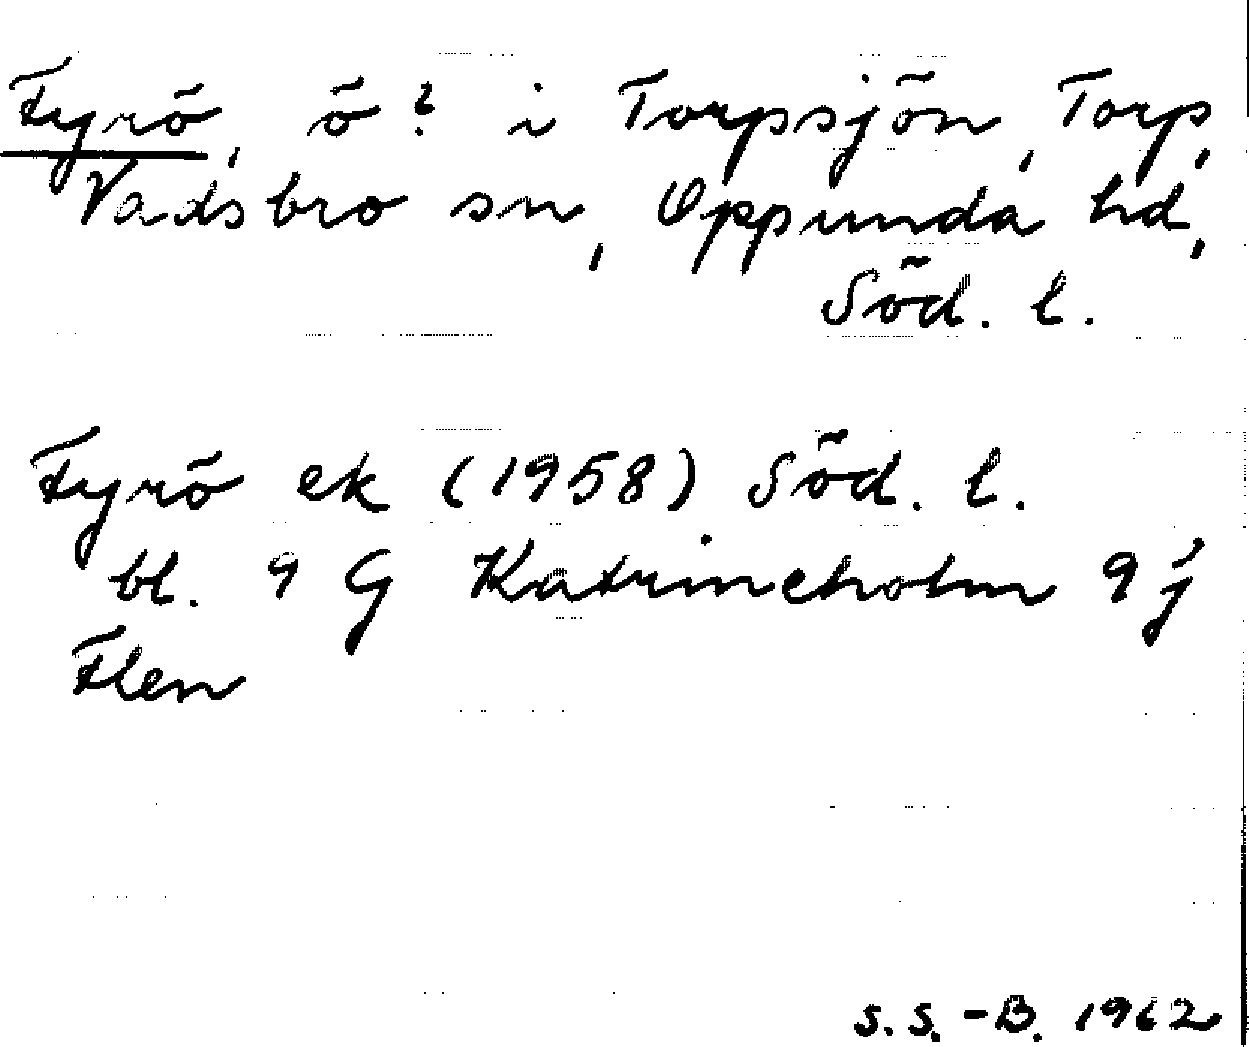 Fyrö, ö? i Torpsjön, Torp,
Vadsbro sn, Oppunda hd,
Söd. l.
Fyrö ek (1958) Söd. l.
bl. 9 G Katrineholm 9 j
Flen
S.S.-B. 1962